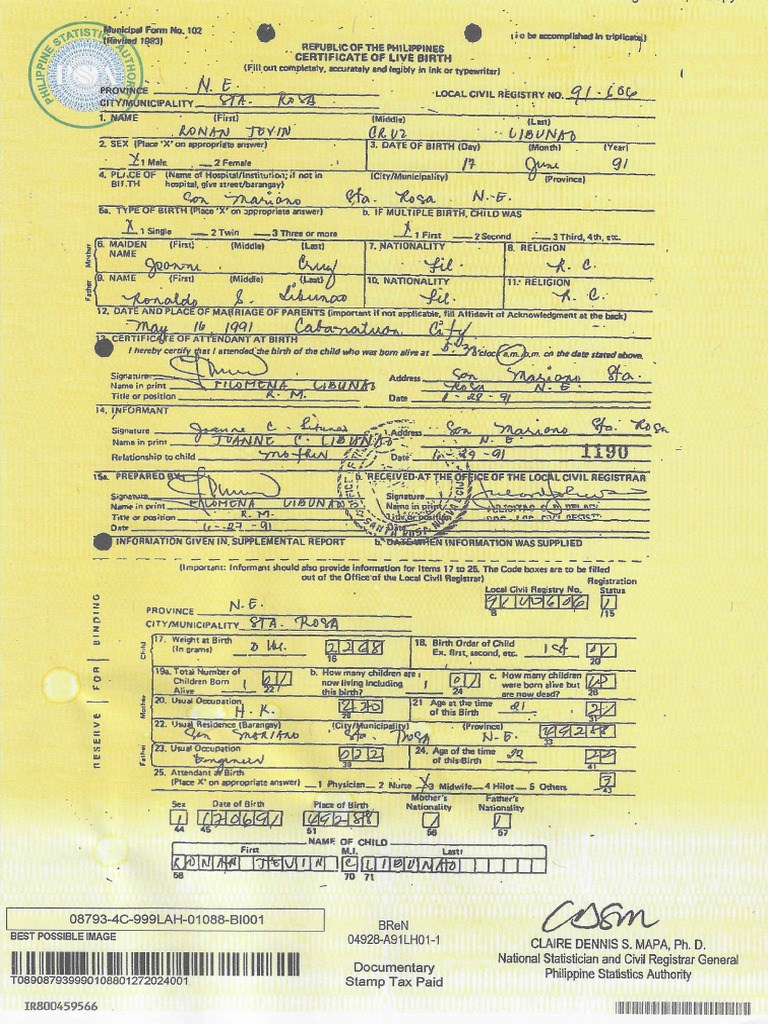 Municipal Form No. 102
(Revised 1983)
(To be accomplished in triplicate)
REPUBLIC OF THE PHILIPPINES
CERTIFICATE OF LIVE BIRTH
(Fill out completely, accurately and legibly in ink or typewriter)
PROVINCE N. E.
LOCAL CIVIL REGISTRY NO. 91-606
CITY/MUNICIPALITY STA. ROSA
1. NAME (First) (Middle) (Last)
RONAN JEVIN CRUZ LIBUNAO
2. SEX (Place 'X' on appropriate answer) 3. DATE OF BIRTH (Day) (Month) (Year)
X 1 Male 2 Female 17 June 91
4. PLACE OF BIRTH (Name of Hospital/Institution; if not in hospital, give street/barangay) (City/Municipality) (Province)
San Mariano Sta. Rosa N.E.
5a. TYPE OF BIRTH (Place 'X' on appropriate answer) b. IF MULTIPLE BIRTH, CHILD WAS
X 1 Single 2 Twin 3 Three or more X 1 First 2 Second 3 Third, 4th, etc.
Mother
6. MAIDEN NAME (First) (Middle) (Last) 7. NATIONALITY 8. RELIGION
Joanne Cruz Fil. R. C.
Father
9. NAME (First) (Middle) (Last) 10. NATIONALITY 11. RELIGION
Ronaldo S. Libunao Fil. R. C.
12. DATE AND PLACE OF MARRIAGE OF PARENTS (important if not applicable, fill Affidavit of Acknowledgment at the back)
May 16 1991 Cabanatuan City
13. CERTIFICATE OF ATTENDANT AT BIRTH
I hereby certify that I attended the birth of the child who was born alive at o'clock a.m. p.m. on the date stated above.
Signature Address San Mariano Sta.
Name in print FILOMENA LIBUNAO Rosa N.E.
Title or position R. M. Date
14. INFORMANT
Signature Joanne C. Libunao Address San Mariano Sta. Rosa
Name in print JOANNE C. LIBUNAO N. E.
Relationship to child mother Date 1190
15a. PREPARED BY b. RECEIVED AT THE OFFICE OF THE LOCAL CIVIL REGISTRAR
Signature Signature
Name in print FILOMENA LIBUNAO Name in print
Title or position R. M. Title or position
Date 6-27-91 Date
INFORMATION GIVEN IN, SUPPLEMENTAL REPORT b. DATE WHEN INFORMATION WAS SUPPLIED
(Important: Informant should also provide information for Items 17 to 25. The Code boxes are to be filled
out of the Office of the Local Civil Registrar)
Local Civil Registry No. Registration Status
8 /15
PROVINCE N.E.
CITY/MUNICIPALITY STA. ROSA
RESERVE FOR BINDING
Child
17. Weight at Birth (In grams) 16
18. Birth Order of Child Ex. first, second, etc. 1st 01 20
Mother
19a. Total Number of Children Born Alive 1 01 22
b. How many children are now living including this birth? 1 01 24
c. How many children were born alive but are now dead? 26
20. Usual Occupation H. K. 21 Age at the time of this Birth 21 21
22. Usual Residence (Barangay) (City/Municipality) (Province)
San Mariano Sta. Rosa N.E. 49288
Father
23. Usual Occupation Engineer 022 24. Age of the time of this Birth 22 22 41
25. Attendant at Birth
(Place X' on appropriate answer) 1 Physician 2 Nurse X 3 Midwife 4 Hilot 5 Others 3 43
Sex Date of Birth Place of Birth Mother's Nationality Father's Nationality
1 170691 49288 1 1
44 45 51 56 57
NAME OF CHILD
First M.I. Last
RONAN JEVIN C LIBUNAO
58 70 71
08793-4C-999LAH-01088-BI001
BEST POSSIBLE IMAGE
T08908793999010880127202​4001
BReN
04928-A91LH01-1
Documentary
Stamp Tax Paid
CLAIRE DENNIS S. MAPA, Ph. D.
National Statistician and Civil Registrar General
Philippine Statistics Authority
IR800459566
PHILIPPINE STATISTICS AUTHORITY
PSA